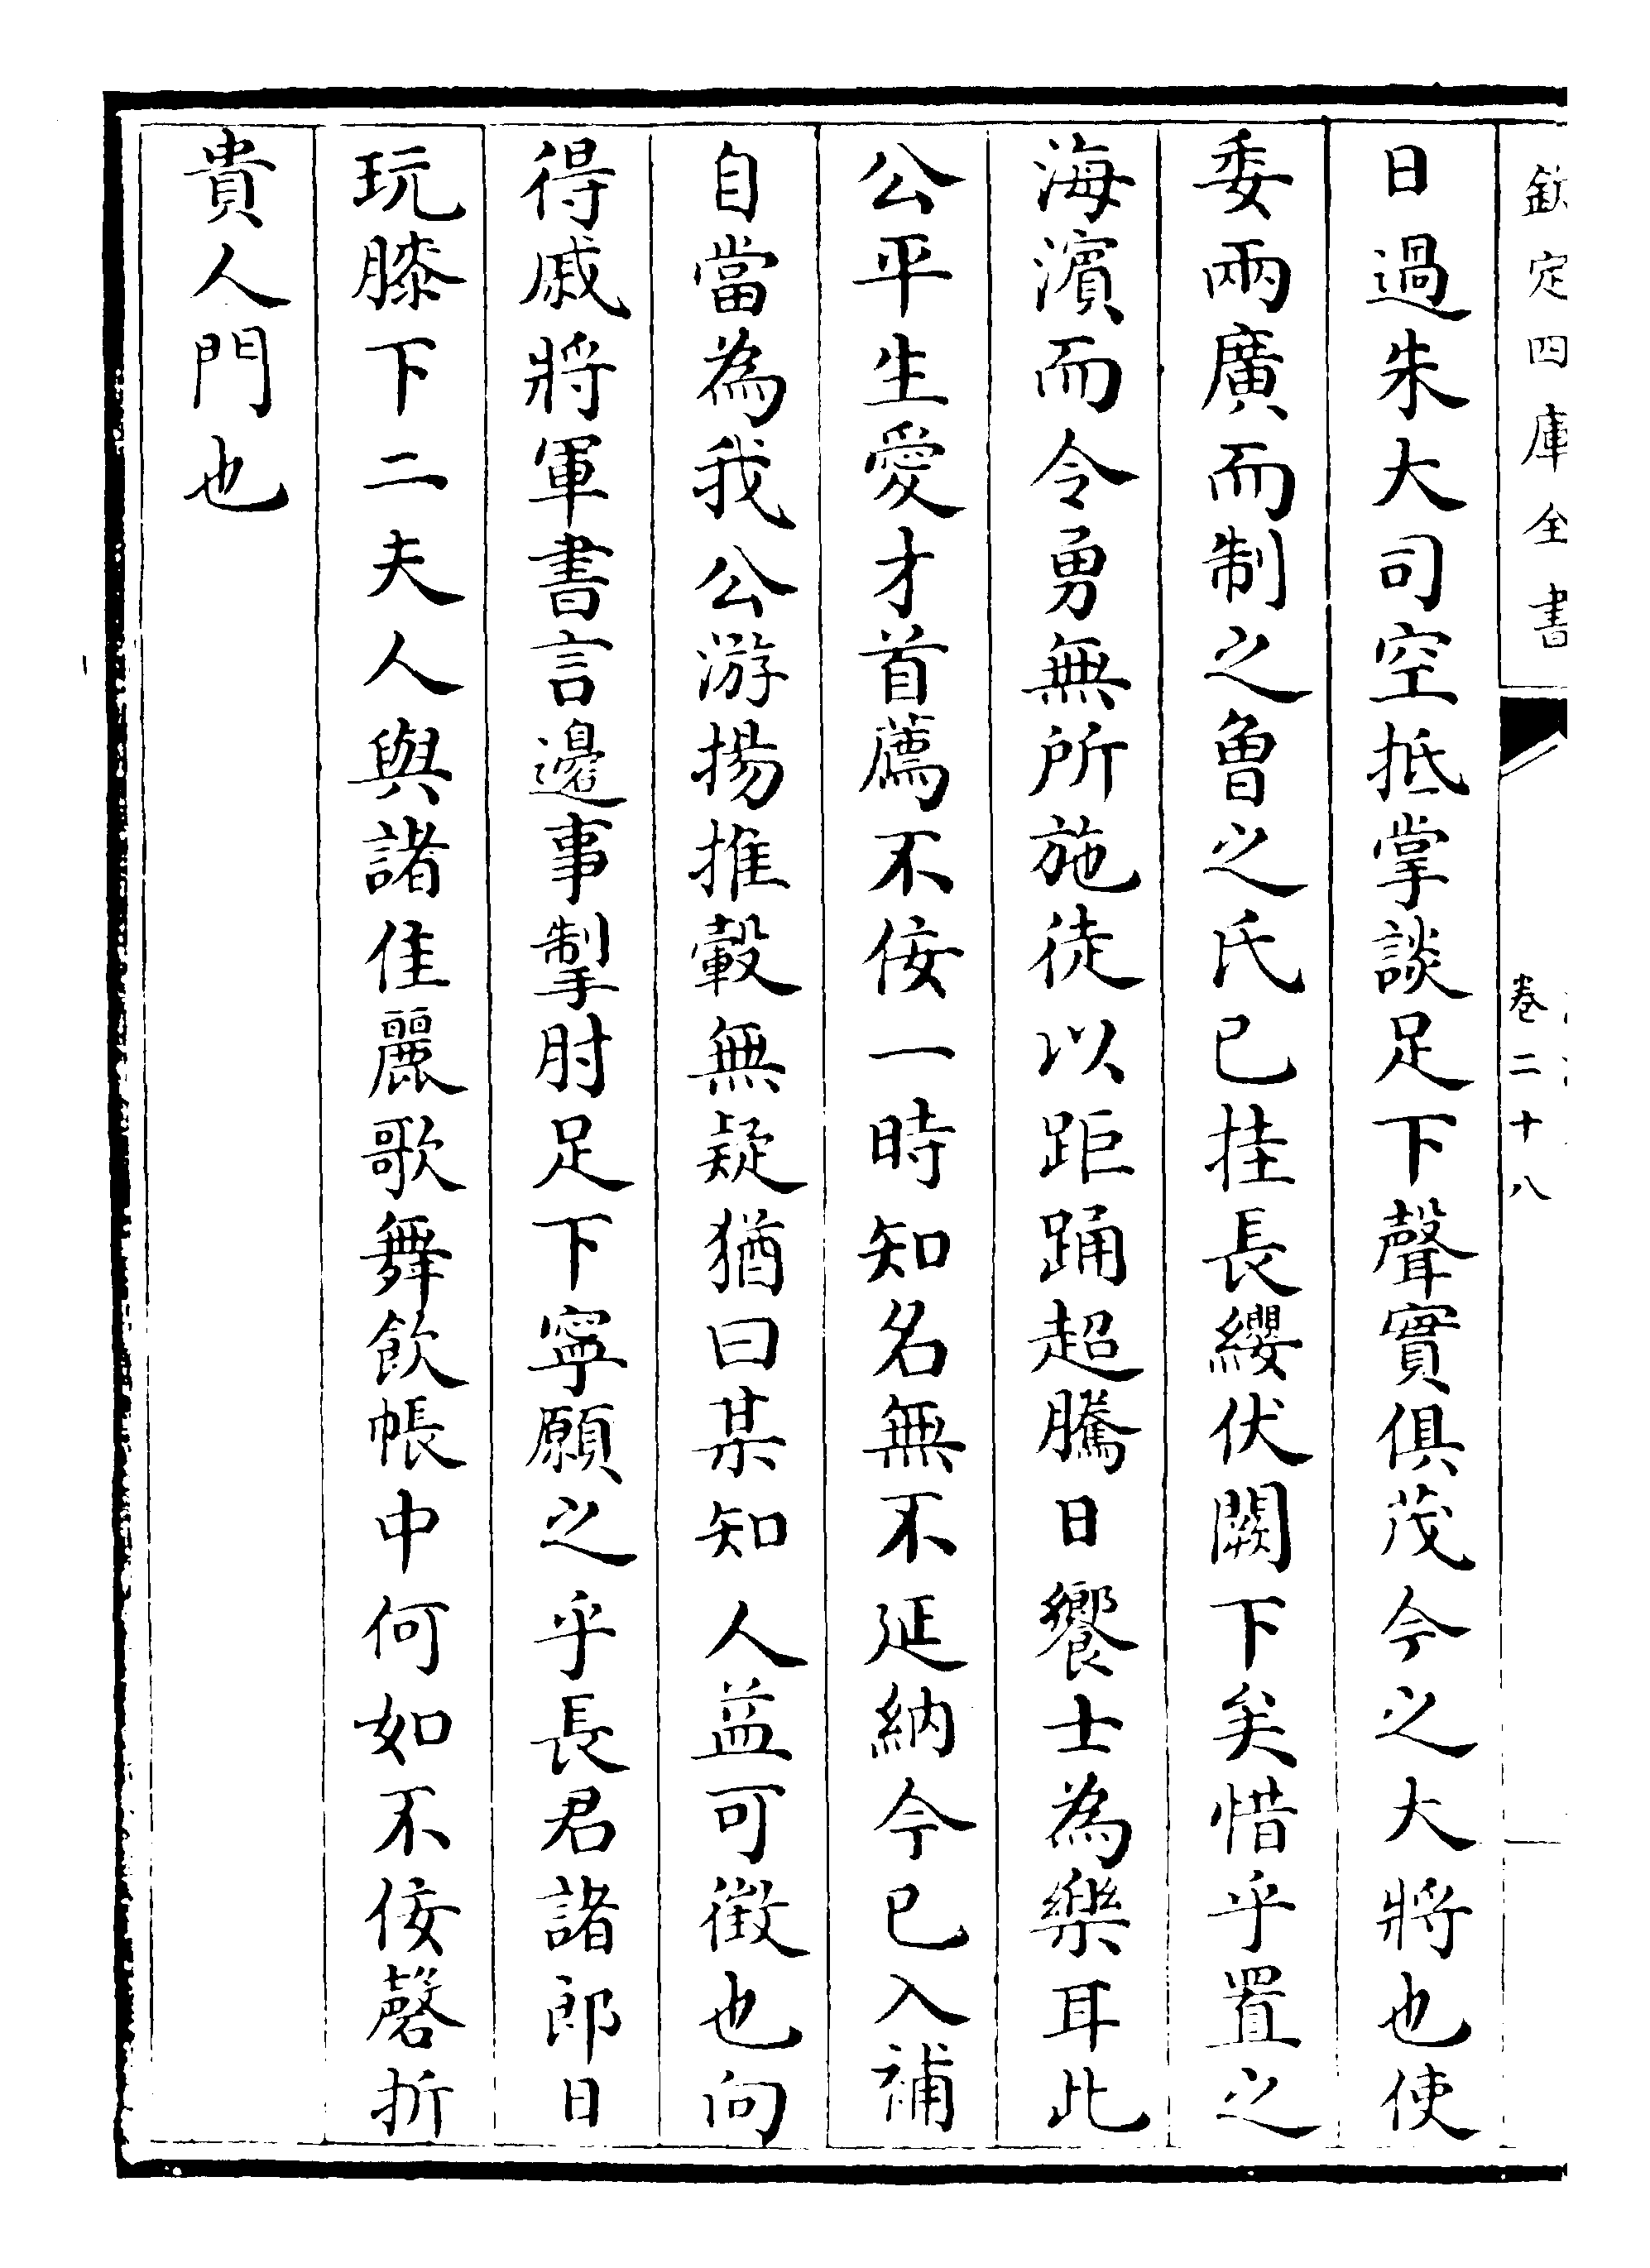 欽定四庫全書
卷二十八
日過朱大司空抵掌談足下聲實俱茂今之大將也使
委兩廣而制之魯之氏已挂長纓伏闕下矣惜乎置之
海濱而令勇無所施徒以距踊超騰日饗士為樂耳此
公平生愛才首薦不佞一時知名無不延納今已入補
自當為我公游揚推轂無疑猶曰某知人益可徵也向
得戚將軍書言邊事掣肘足下寧願之乎長君諸郎日
玩膝下二夫人與諸佳麗歌舞飲帳中何如不佞磬折
貴人門也